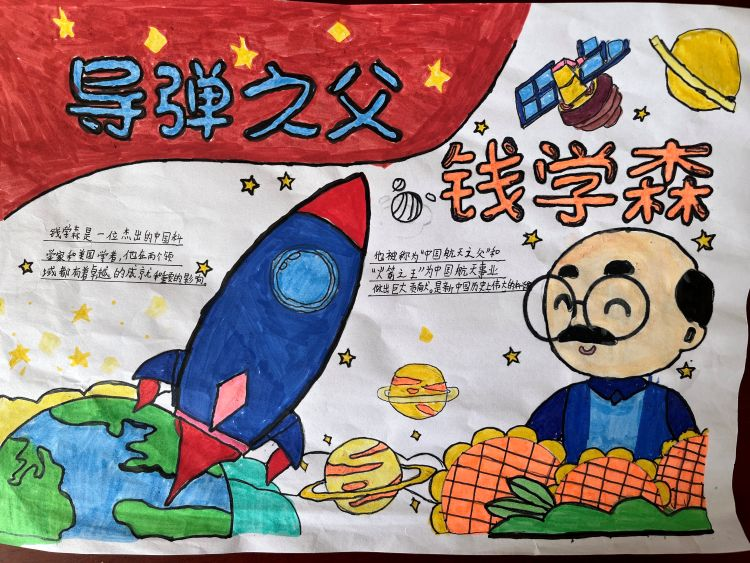 导弹之父
钱学森
钱学森是一位杰出的中国科
学家和美国学者,他在两个领
域都有着卓越的成就和重要的影响。
他被称为“中国航天之父”和
“火箭之王”为中国航天事业
做出巨大贡献。是新中国历史上伟大的